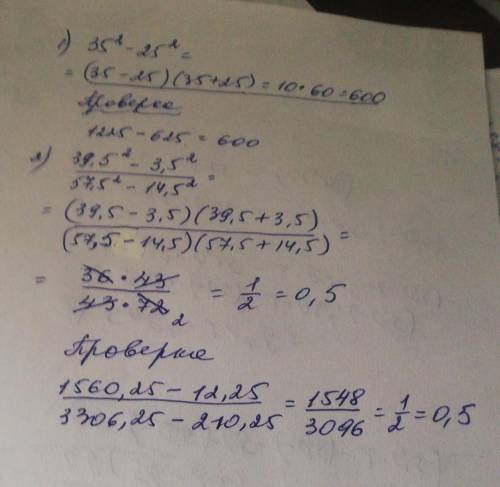 1) 35² - 25² =
= (35 - 25)(35 + 25) = 10 · 60 = 600
Проверка
1225 - 625 = 600
2) (39,5² - 3,5²) / (57,5² - 14,5²) =
= (39,5 - 3,5)(39,5 + 3,5) / (57,5 - 14,5)(57,5 + 14,5) =
= 36 · 43 / 43 · 72 2 = 1/2 = 0,5
Проверка
1560,25 - 12,25 / 3306,25 - 210,25 = 1548/3096 = 1/2 = 0,5